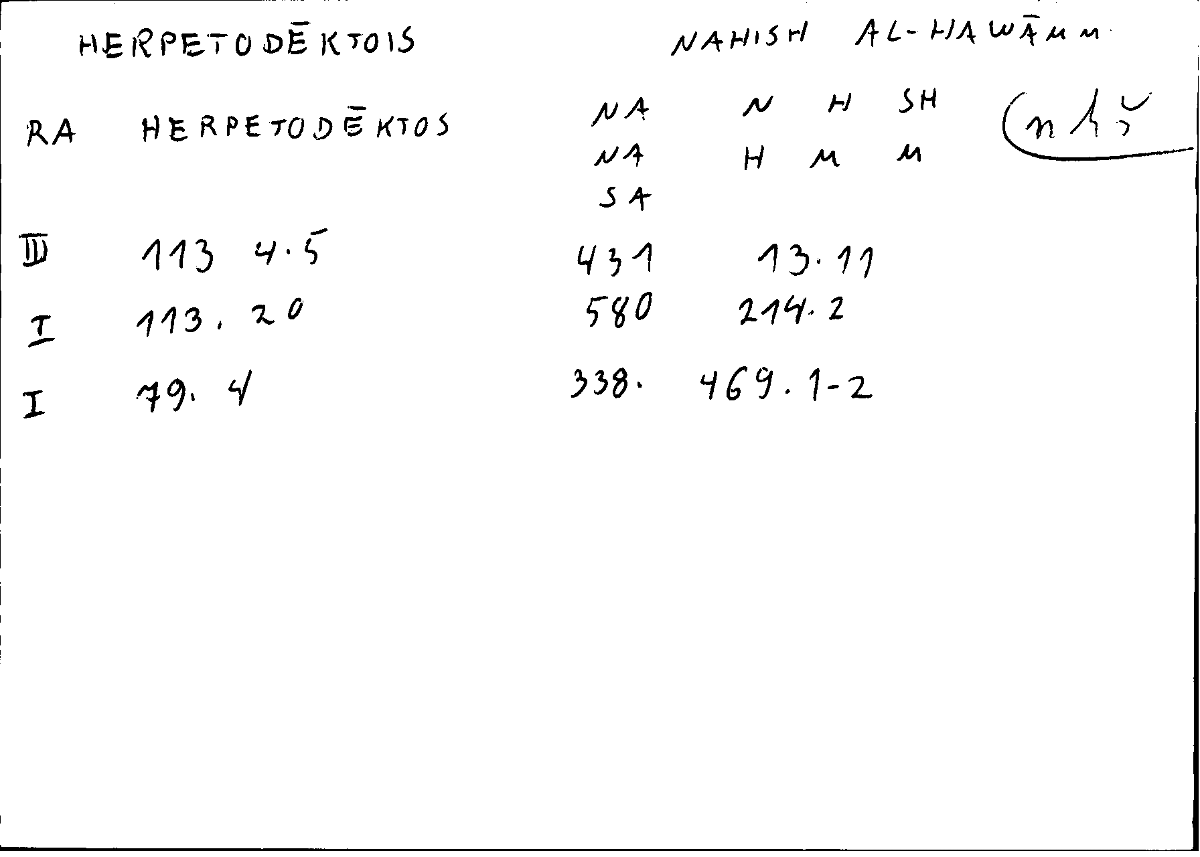 HERPETODĒKTOIS NAHISH AL-HAWĀMM
RA HERPETODĒKTOS NA N H SH (nhš
NA H M M
SA
III 113 4.5 431 13.11
I 113. 20 580 214.2
I 79. 4 338. 469.1-2